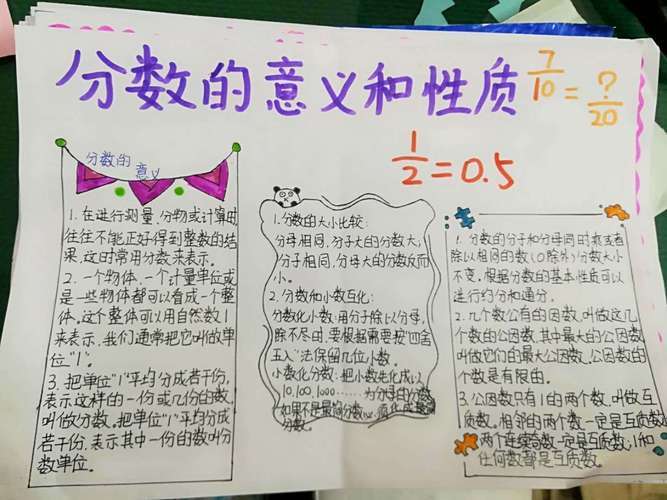 分数的意义和性质
7/10=?/20
1/2=0.5
分数的
意义
1.在进行测量、分物或计算时
往往不能正好得到整数的结
果,这时常用分数来表示。
2.一个物体,一个计量单位或
是一些物体都可以看成一个整
体,这个整体可以用自然数1
来表示,我们通常把它叫做单
位“1”。
3.把单位“1”平均分成若干份,
表示这样的一份或几份的数
叫做分数。把单位“1”平均分成
若干份,表示其中一份的数叫分
数单位。
1.分数的大小比较:
分母相同,分子大的分数大;
分子相同,分母大的分数反而
小。
2.分数和小数互化:
分数化小数:用分子除以分母,
除不尽时,要根据需要按“四舍
五入”法保留几位小数。
小数化分数:把小数先化成以
10,100,1000……为分母的分数,
如果不是最简分数,
分数。
1.分数的分子和分母同时乘或者
除以相同的数(0除外)分数大小
不变,根据分数的基本性质可以
进行约分和通分。
2.几个数公有的因数,叫做这几
个数的公因数,其中最大的公因数
叫做它们的最大公因数,公因数的
个数是有限的。
3.公因数只有1的两个数,叫做互
质数。相邻的两个数一定是互质数
两个连续奇数一定是互质数;1和
任何数都是互质数。